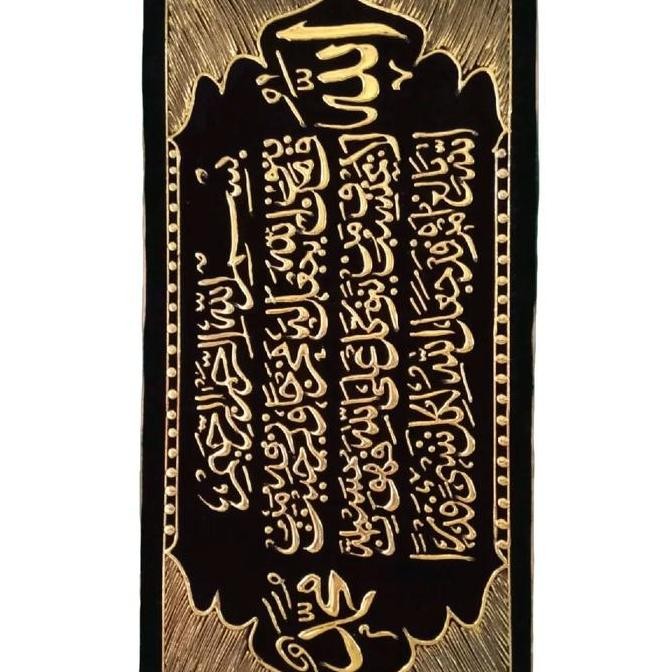 الله
بسم الله الرحمن الرحيم
ومن يتق الله يجعل له مخرجا ويرزقه من حيث
لا يحتسب ومن يتوكل على الله فهو حسبه ان
الله بالغ امره قد جعل الله لكل شيء قدرا
محمد